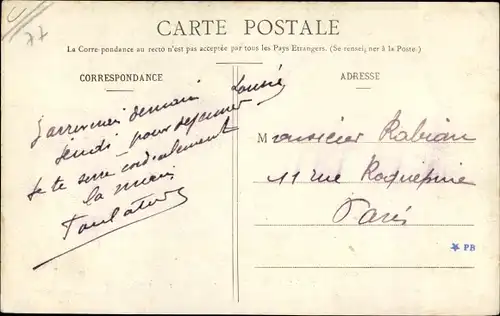 77
CARTE POSTALE
La Correspondance au recto n'est pas acceptée par tous les Pays Etrangers. (Se renseigner à la Poste.)
CORRESPONDANCE
J'arriverai demain
Jeudi pour déjeuner
Je te serre cordialement
la main
ADRESSE
Monsieur Rabian
11 rue Roquepine
Paris
PB